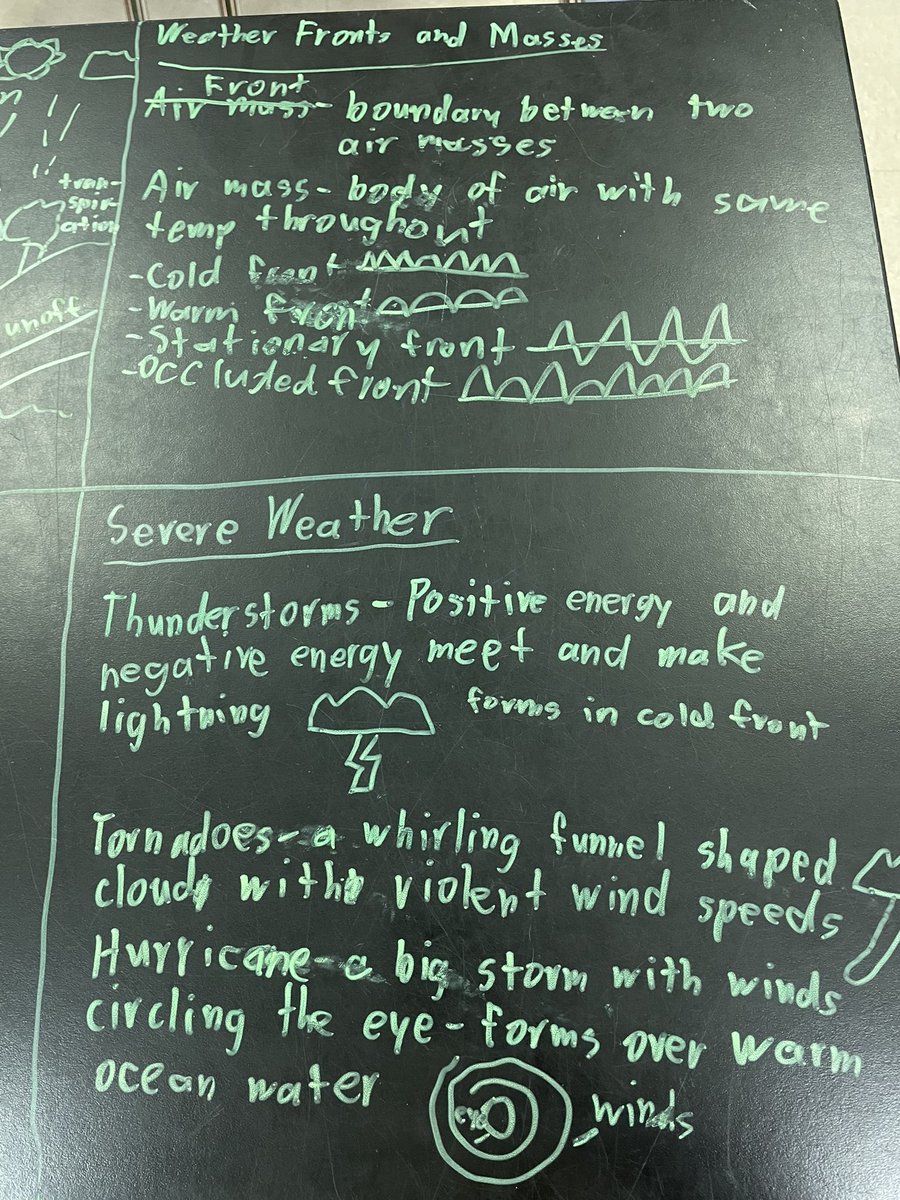 Weather Fronts and Masses
Front
Air mass- boundary between two
air masses
Air mass- body of air with same
temp throughout
-Cold front
-Warm front
-Stationary front
-Occluded front
tran-
spir-
ation
unoff
Severe Weather
Thunderstorms- Positive energy and
negative energy meet and make
lightning forms in cold front
Tornadoes- a whirling funnel shaped
cloud with violent wind speeds
Hurricane- a big storm with winds
circling the eye- forms over warm
ocean water
eye
winds